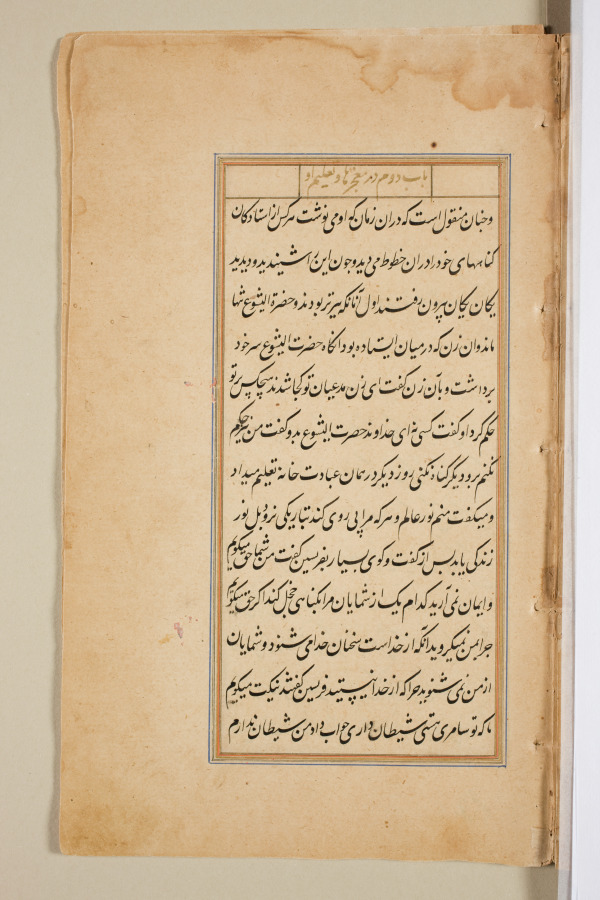 باب دوم در معجزها و تعلیم او
و چنان منقول است که در ان زمان که او می نوشت هر کس از استادکان
کناههای خود را در ان خطوط می دید و چون این را شنیدند و دیدند
یکان یکان بیرون رفتند اول آنانکه پیرتر بودند و حضرة الیشوع تنها
ماند و ان زن که در میان ایستاده بود انکاه حضرت الیشوع سر خود
برداشت و بآن زن گفت ای زن مدعیان تو کجا شدند هیچکس بر تو
حکم کرد او کفت کسی نه ای خداوند حضرت الیشوع بدو کفت من نیز حکم
نکنم برو دیگر کناه نکنی روز دیکر در همان عبادت خانه تعلیم میداد
و میکفت منم نور عالم و هر که مرا پی روی کند تباریکی نرود بل نور
زندکی یابد پس از کفت و کوی بسیار بفریسین کفت من شما حق میکویم
و ایمان نمی آرید کدام یک از شمایان مرا بکناهی خجل کند اکر حق میکویم
چرا بمن نمیکروید انکه از خداست سخنان خدا می شنود و شمایان
از من نمی شنوید چرا که از خدا نیستید فریسین کفتند نیکت میکویم
ما که تو سامری هستی شیطان داری جواب داد من شیطان ندارم